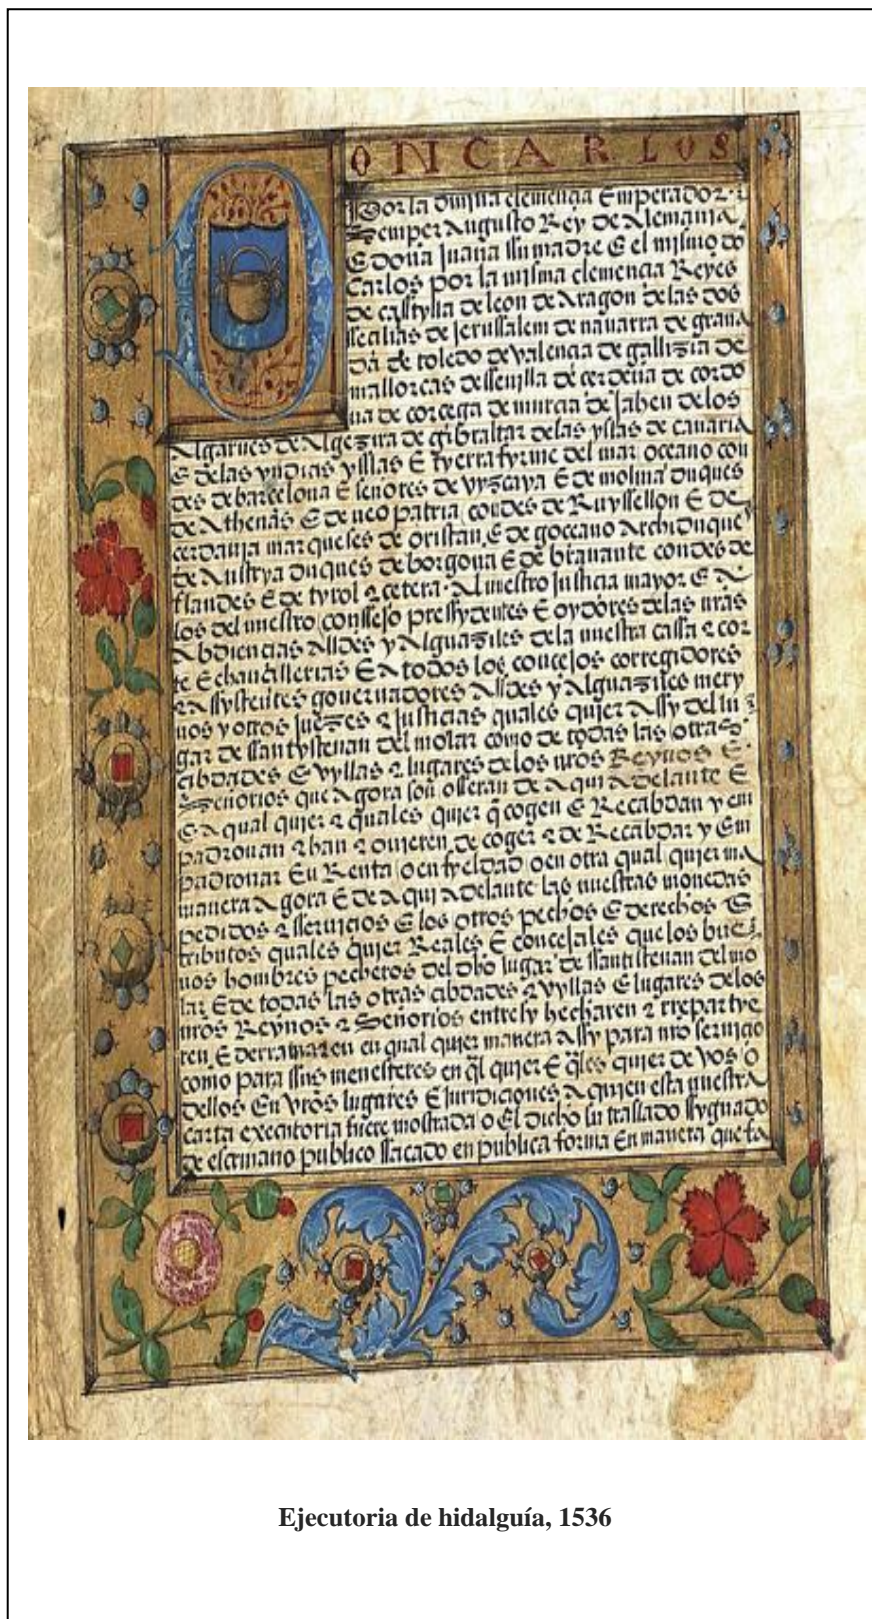 DON CARLOS
Por la divina clemençia Emperador
Semper Augusto Rey de Alemania
E doña Juana ssu madre E el mismo do
Carlos por la misma clemencia Reyes
de casstylla de leon de Aragon de las dos
sseçilias de Jerussalem de navarra de grana
da de toledo de valencia de gallizia de
mallorcas de ssevilla de çerdeña de cordo
va de corcega de murcia de Jahen de los
Algarves de Algezira de gibraltar de las yslas de canaria
E de las yndias yslas E tyerra fyrme del mar oceano con
des de barcelona E señores de vyzcaya E de molina duques
de Athenas E de neo patria condes de Ruyssellon E de
cerdania marqueses de oristan E de goceano Archiduques
de Austrya duques de borgoña E de bravante condes de
flandes E de tyrol & cetera. Al nuestro justicia mayor E A
los del nuestro conssejo pressydentes E oydores de las nras
Abdiencias Allcdes y Alguaziles de la nuestra cassa & cor
te E chancillerias E A todos los concejos corregidores
& Assystentes governadores Allcdes y Alguaziles mery
nos y otros juezes & justicias quales quier Assy del lu
gar de ssantystevan del molar como de todas las otras
cibdades E vyllas & lugares de los nros Reynos E
Señorios que Agora son o sseran de Aqui Adelante E
E A qual quier & quales quier q cogen E Recabdan y en
padronan & han & ovieren de coger & de Recabdar y En
padronar En Renta o en fyeldad o en otra qual quier ma
manera Agora E de Aqui Adelante las nuestras monedas
pedidos & sservicios E los otros pechos E derechos E
tributos quales quier Reales E concejales que los bue
nos hombres pecheros del dho lugar de ssantistevan del mo
lar E de todas las otras cibdades & vyllas E lugares de los
nros Reynos & Señorios entre sy hecharen & rrepartye
ren E derramaren en qual quier manera Assy para nro servicio
como para ssus menesteres en ql quier E qles quier de vos o
dellos En vros lugares E juridiciones A quien esta nuestra
carta executoria fuere mostrada o El dicho su traslado ssygnado
de escrivano publico ssacado en publica forma En manera que fa
Ejecutoria de hidalguía, 1536